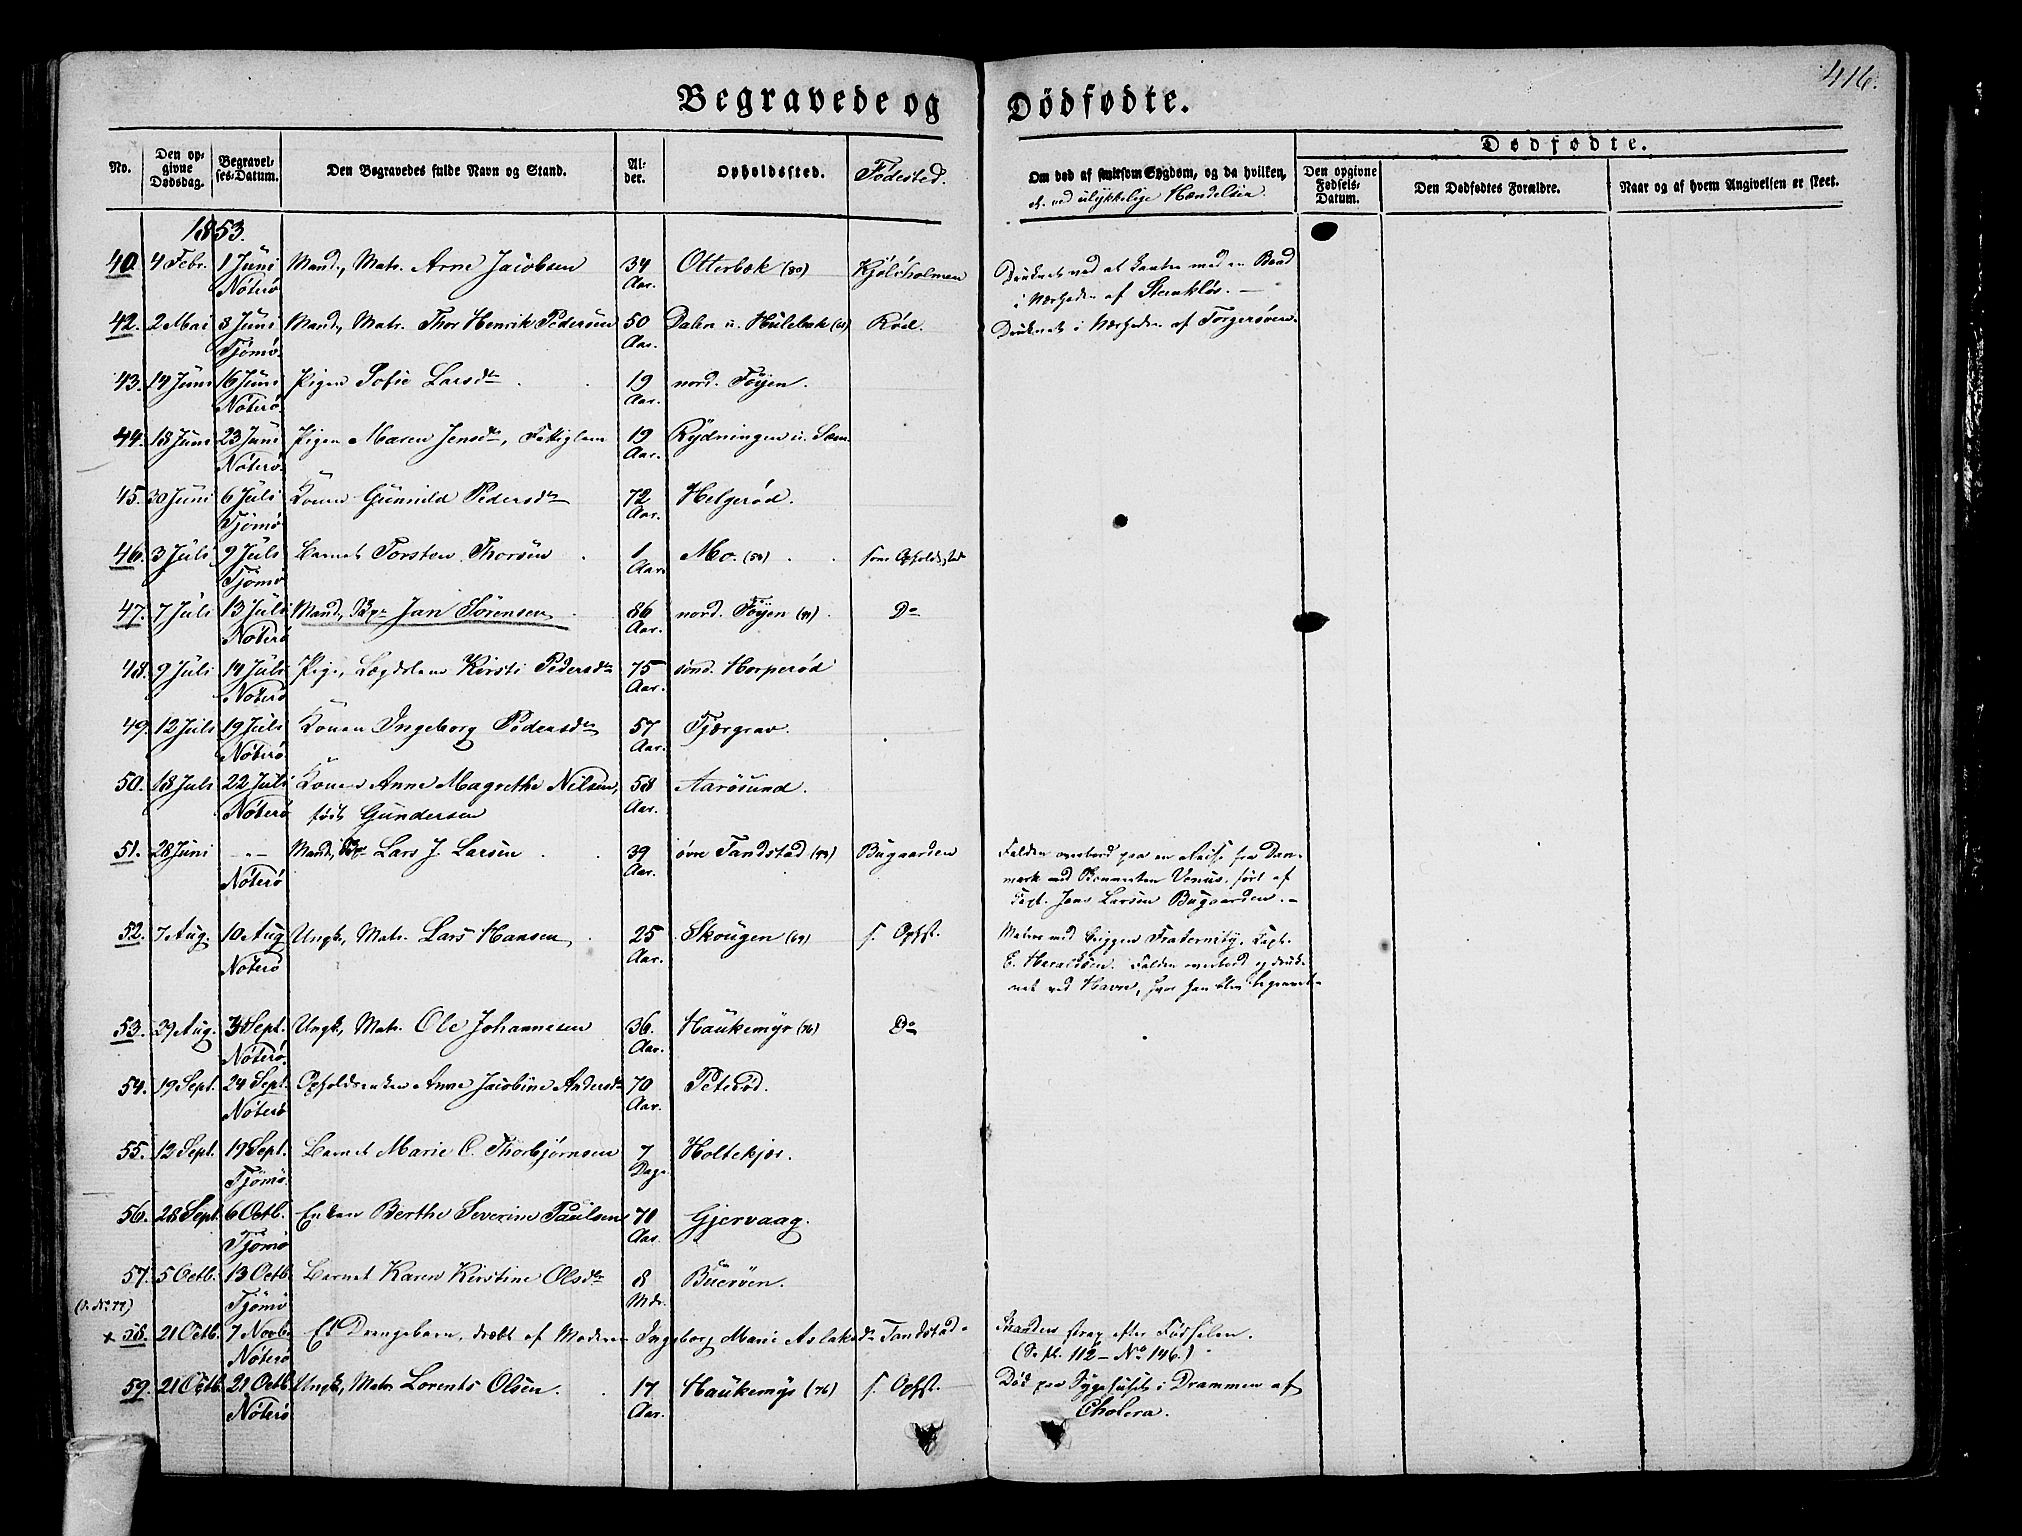 416.
Begravede og Dødfødte.
No. Den opgivne Dødsdag. Begravelses-Datum. Den Begravedes fulde Navn og Stand. Alder. Opholdssted. Fødested. Om død af smitsom Sygdom, og da hvilken, el. ved ulykkelige Hændelser. Dødfødte. Den opgivne Fødsels-Datum. Den Dødfødtes Forældre. Naar og af hvem Angivelsen er skeet.
1853.
40. 4 Febr. 1 Juni Mand, Matr. Arne Jacobsen 34 Otterbæk (80) Kjølsholmen
Nøterø Aar.
i Nærheden af Stenkløs.
42. 2 Mai 8 Juni Mand, Matr. Thor Henrik Pedersen 50 Dalen u. Hulebak Rød. Druknet i Nærheden af Torgersøen.
Tjømø. Aar.
43. 14 Juni 16 Juni Pigen Sofie Larsdtr 19 nord. Føyen.
Nøterø. Aar.
44. 18 Juni 23 Juni Pigen Maren Jensdtr, Fattiglem 19 Rydningen u. Sem.
Nøterø. Aar.
45. 30 Juni 6 Juli Konen Gunnild Pedersdtr 72 Helgerød.
Tjømø Aar.
46. 3 Juli 9 Juli Barnet Torsten Thorsen 1 Mo. (50) som Opholdssted
Tjømø Aar.
47. 7 Juli 13 Juli Mand, Jan Sørensen 86 nord. Føyen (91) Do
Nøterø Aar.
48. 9 Juli 14 Juli Pige, Lægdslem Kirsti Pedersdtr 75 sønd. Horperød
Nøterø Aar.
49. 12 Juli 19 Juli Konen Ingeborg Pedersdtr 57 Tjærgrav.
Nøterø Aar.
50. 18 Juli 22 Juli Konen Anne Magrethe Nilsen, 58 Aarøsund.
Nøterø født Gundersen Aar.
51. 28 Juni -"- Mand, Lars J. Larsen 39 øvre Tandstad (99) Bugaarden Falden overbord paa en Reise fra Dan-
Nøterø Aar. mark med Skonnerten Venus, ført af
Capt. Jens Larsen Bugaarden.-
52. 7 Aug. 10 Aug Ungk, Matr. Lars Hansen 25 Skougen (69) s. Ophst. Matros med Briggen Fraternity, Capt.
Nøterø Aar. Falden overbord og druk-
net ved Havre, hvor han blev begravet.
53. 29 Aug. 3 Sept. Ungk, Matr. Ole Johannesen 36. Haukemyr (76) Do
Nøterø. Aar.
54. 19 Sept. 24 Sept. Opholdsenken Anne Jacobine Andersdtr 70 Peterød.
Nøterø Aar.
55. 12 Sept. 19 Sept. Barnet Marie C. Thorbjørnsen 7 Holtekjær.
Tjømø. Dage
56. 28 Sept. 6 Octb. Enken Berthe Severine Paulsen 70 Gjervaag.
Tjømø Aar.
57. 5 Octb. 13 Octb. Barnet Karen Kirstine Olsdtr 8 Buerøen.
Tjømø Mdr.
x 58. 21 Octb. 7 Novb. Et Drengebarn, dræbt af Moderen Ingeborg Marie Aslaksdtr Tandstad strax efter Fødselen.
Nøterø (S. pl. 112 - No 146.)
59. 21 Octb. 21 Octb Ungk, Matr. Lorents Olsen 17 Haukemyr (76) s. Ophst. Død paa Sygehuset i Drammen af
Nøterø Aar. Cholera.